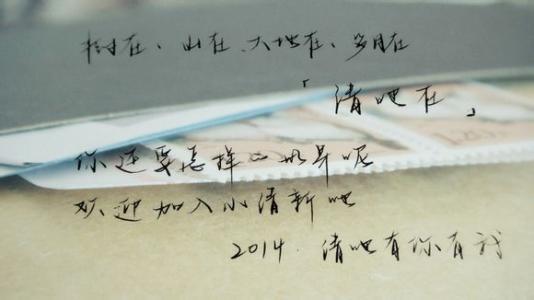 树在、山在、大地在、岁月在
「清吧在」
你还要怎样的世界呢
欢迎加入小清新吧
2014.清吧有你有我